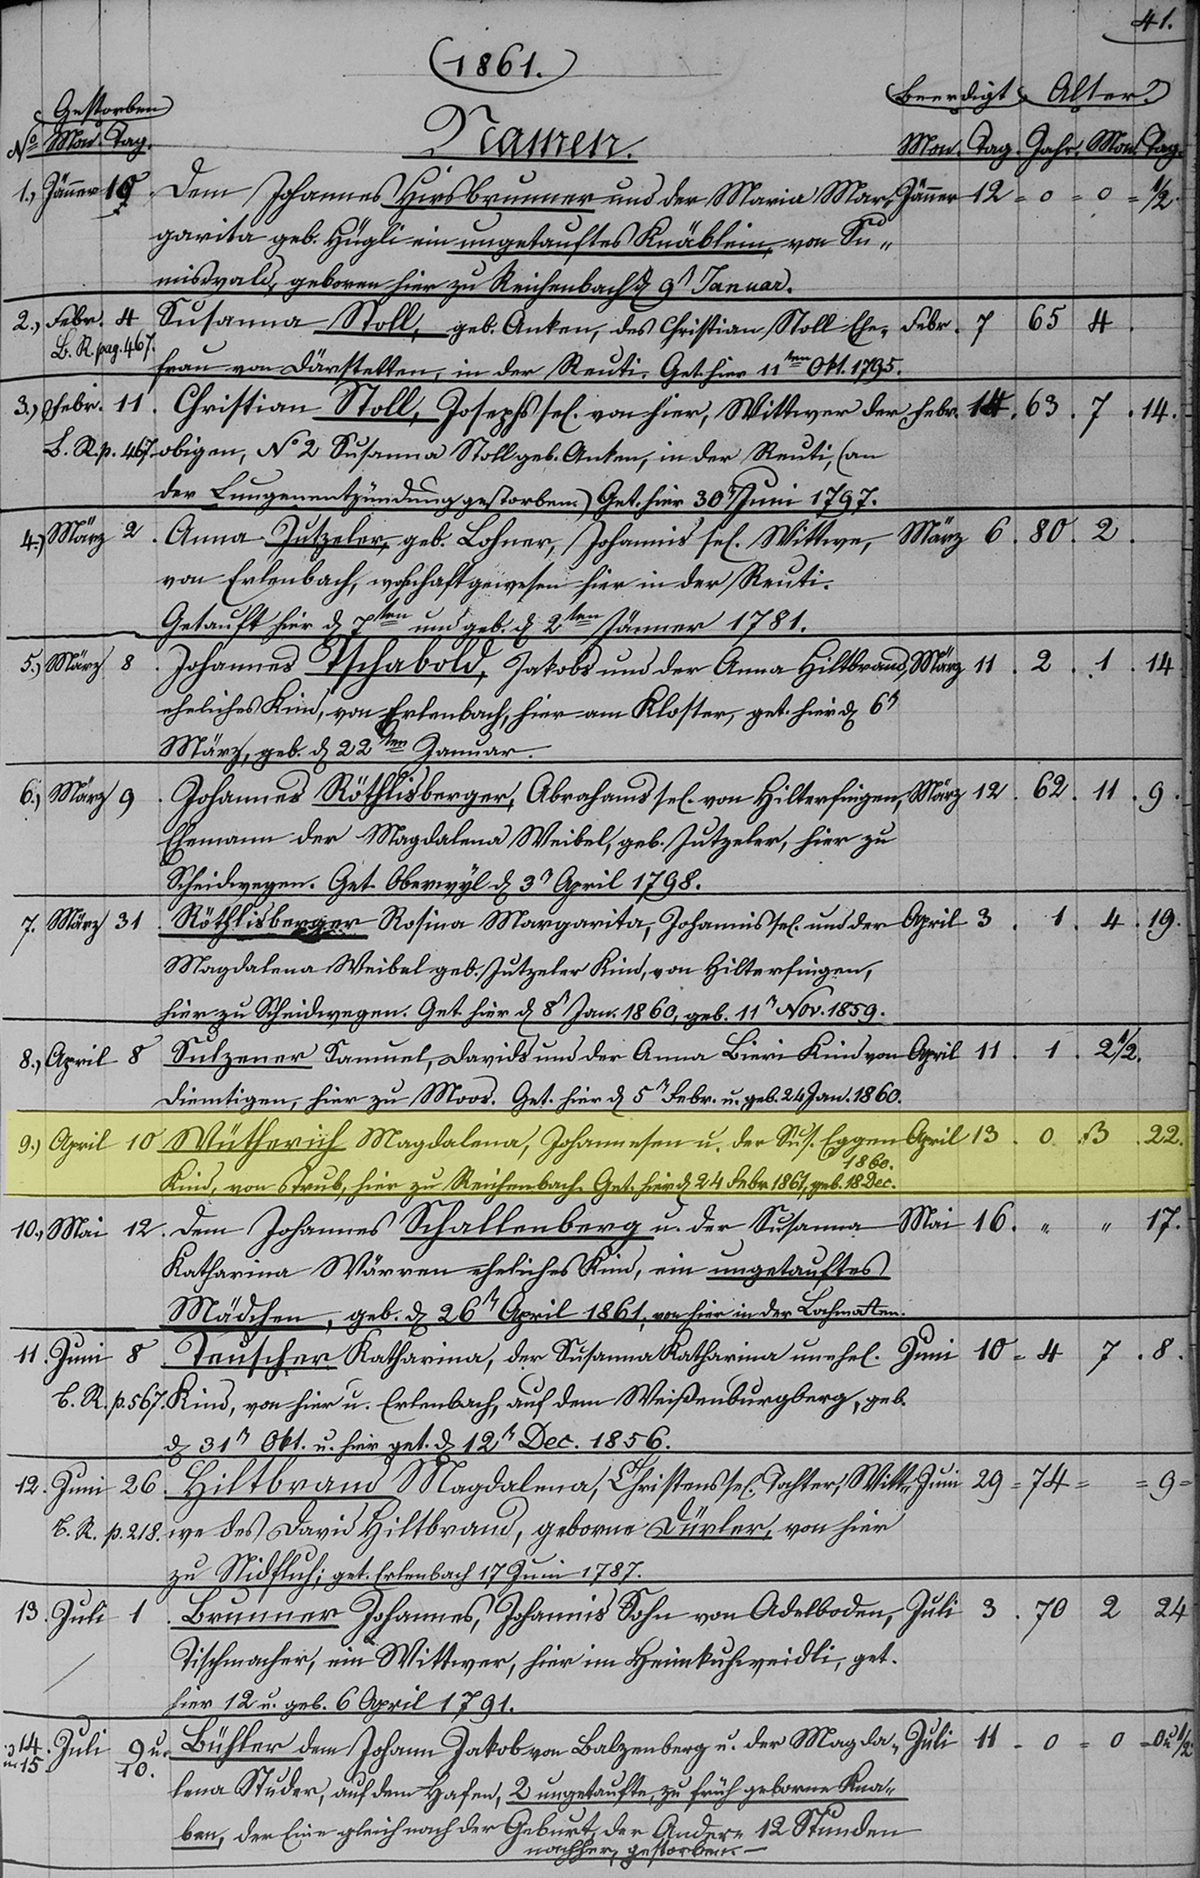 41.
(1861.)
Gestorben Beerdigt Alter.
No Mon. Tag. Namen. Mon. Tag. Jahr. Mon. Tag.
1., Jänner 10 Dem Johannes Hirsbrunner und der Maria Mar- Jänner 12 = 0 = 0 = 1/2.
garita geb. Hügli ein ungetauftes Knäblein, von Su„
miswald, geboren hier zu Reichenbach d. 9n Januar.
2., Febr. 4 Susanna Stoll, geb. Anken, des Christian Stoll Ehe„ Febr. 7 65 4.
B. R. pag. 467. frau von Därstetten, in der Reuti. Get. hier 11ten Okt. 1795.
3., Febr. 11. Christian Stoll, Josephs sel. von hier, Wittwer der Febr. 14. 63. 7. 14.
B. R. p. 467. obigen, No 2 Susanna Stoll geb. Anken, in der Reuti, (an
der Lungenentzündung gestorben.) Get. hier 30n Juni 1797.
4., März 2. Anna Jutzeler, geb. Lohner, Johannis sel. Wittwe, März 6. 80. 2.
von Erlenbach, wohnhaft gewesen hier in der Reuti.
Getauft hier d. 7ten und geb. d. 2ten Jänner 1781.
5., März 8. Johannes Tschabold, Jakobs und der Anna Hiltbrand, März 11. 2. 1. 14
eheliches Kind, von Erlenbach, hier am Kloster, get. hier d. 6n
März, geb. d. 22ten Januar.
6., März 9. Johannes Röthlisberger, Abrahams sel. von Hilterfingen, März 12. 62. 11. 9.
Ehemann der Magdalena Weibel, geb. Jutzeler, hier zu
Scheidwegen. Get. Oberwyl d. 3n April 1798.
7. März 31. Röthlisberger Rosina Margarita, Johannis sel. und der April 3. 1. 4. 19.
Magdalena Weibel geb. Jutzeler Kind, von Hilterfingen,
hier zu Scheidwegen. Get. hier d. 8n Jan. 1860, geb. 11n Nov. 1859.
8., April 8 Sulzener Samuel, Davids und der Anna Bieri Kind von April 11. 1. 2 1/2.
Diemtigen, hier zu Moos. Get. hier d. 5n Febr. u. geb. 24 Jan. 1860.
9., April 10 Wütherich Magdalena, Johannesen u. der Sus. Eggen April 13. 0. 3. 22.
1860.
Kind, von Trub, hier zu Reichenbach. Get. hier d. 24 Febr 1861, geb. 18 Dec.
10., Mai 12. Dem Johannes Schallenberg u. der Susanna Mai 16. „ „ 17.
Katharina Wärren eheliches Kind, ein ungetauftes
Mädchen, geb. d. 26n April 1861, von hier in der Lochmatten.
11. Juni 8 Teuscher Katharina, der Susanna Katharina unehel. Juni 10 = 4 7. 8.
B. R. p. 567. Kind, von hier u. Erlenbach, auf dem Weißenburgberg, geb.
d. 31n Okt. u. hier get. d. 12n Dec. 1856.
12. Juni 26. Hiltbrand Magdalena, Christens sel. Tochter, Witt„ Juni 29 = 74 = = 9 =
B. R. p. 218. we des David Hiltbrand, geborne Dürler, von hier
zu Nidfluh; get. Erlenbach 17 Juni 1787.
13. Juli 1. Brunner Johannes, Johannis Sohn von Adelboden, Juli 3. 70 2 24
Tischmacher, ein Wittwer, hier im Heimkuhweidli, get.
hier 12 u. geb. 6 April 1791.
14. u. 15. Juli 9 u. 10. Bühler dem Johann Jakob von Balzenberg u. der Magda„ Juli 11 = 0 = 0 = 0 u. 1/2
lena Studer, auf dem Hafen, 2 ungetaufte, zu früh geborne Kna„
ben, der Eine gleich nach der Geburt, der Andere 12 Stunden
nachher, gestorben.